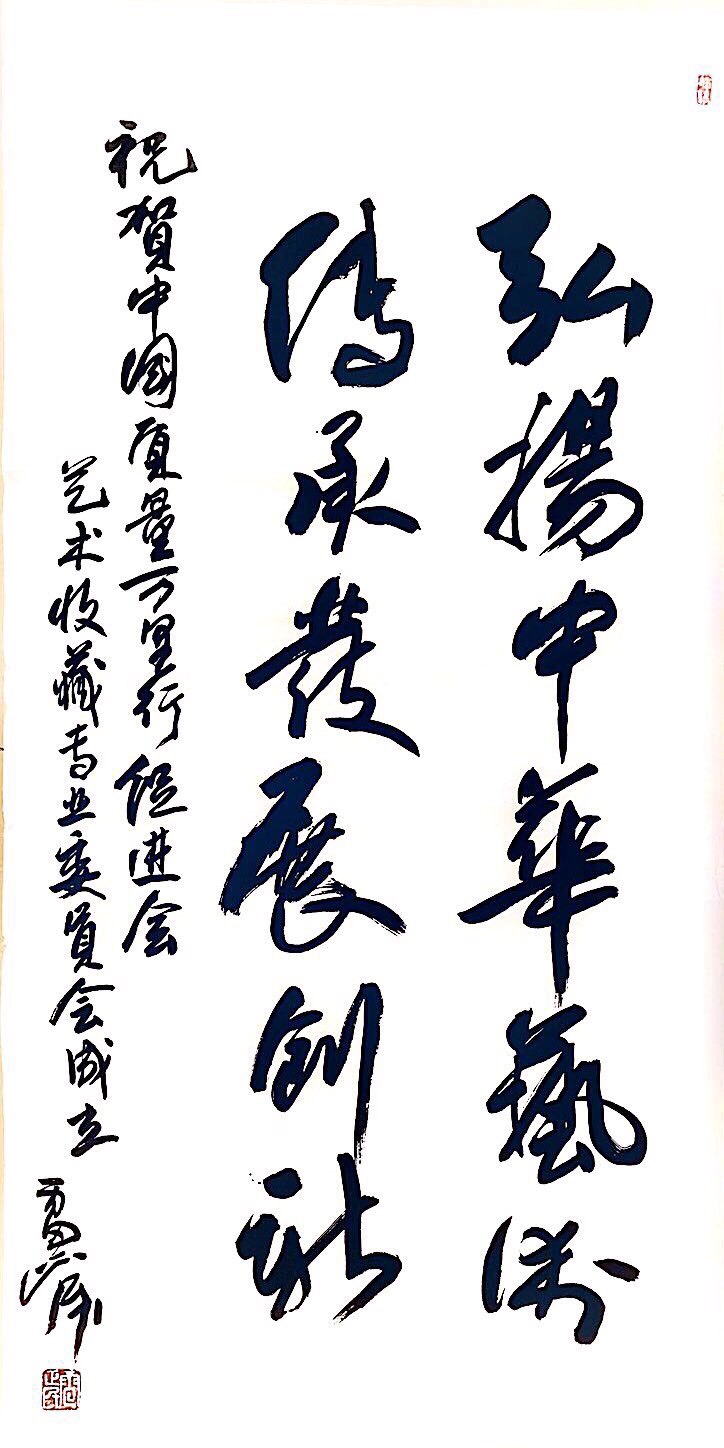 弘揚中華藝術
傳承發展創新
祝賀中國质量万里行促进会
艺术收藏专业委員会成立